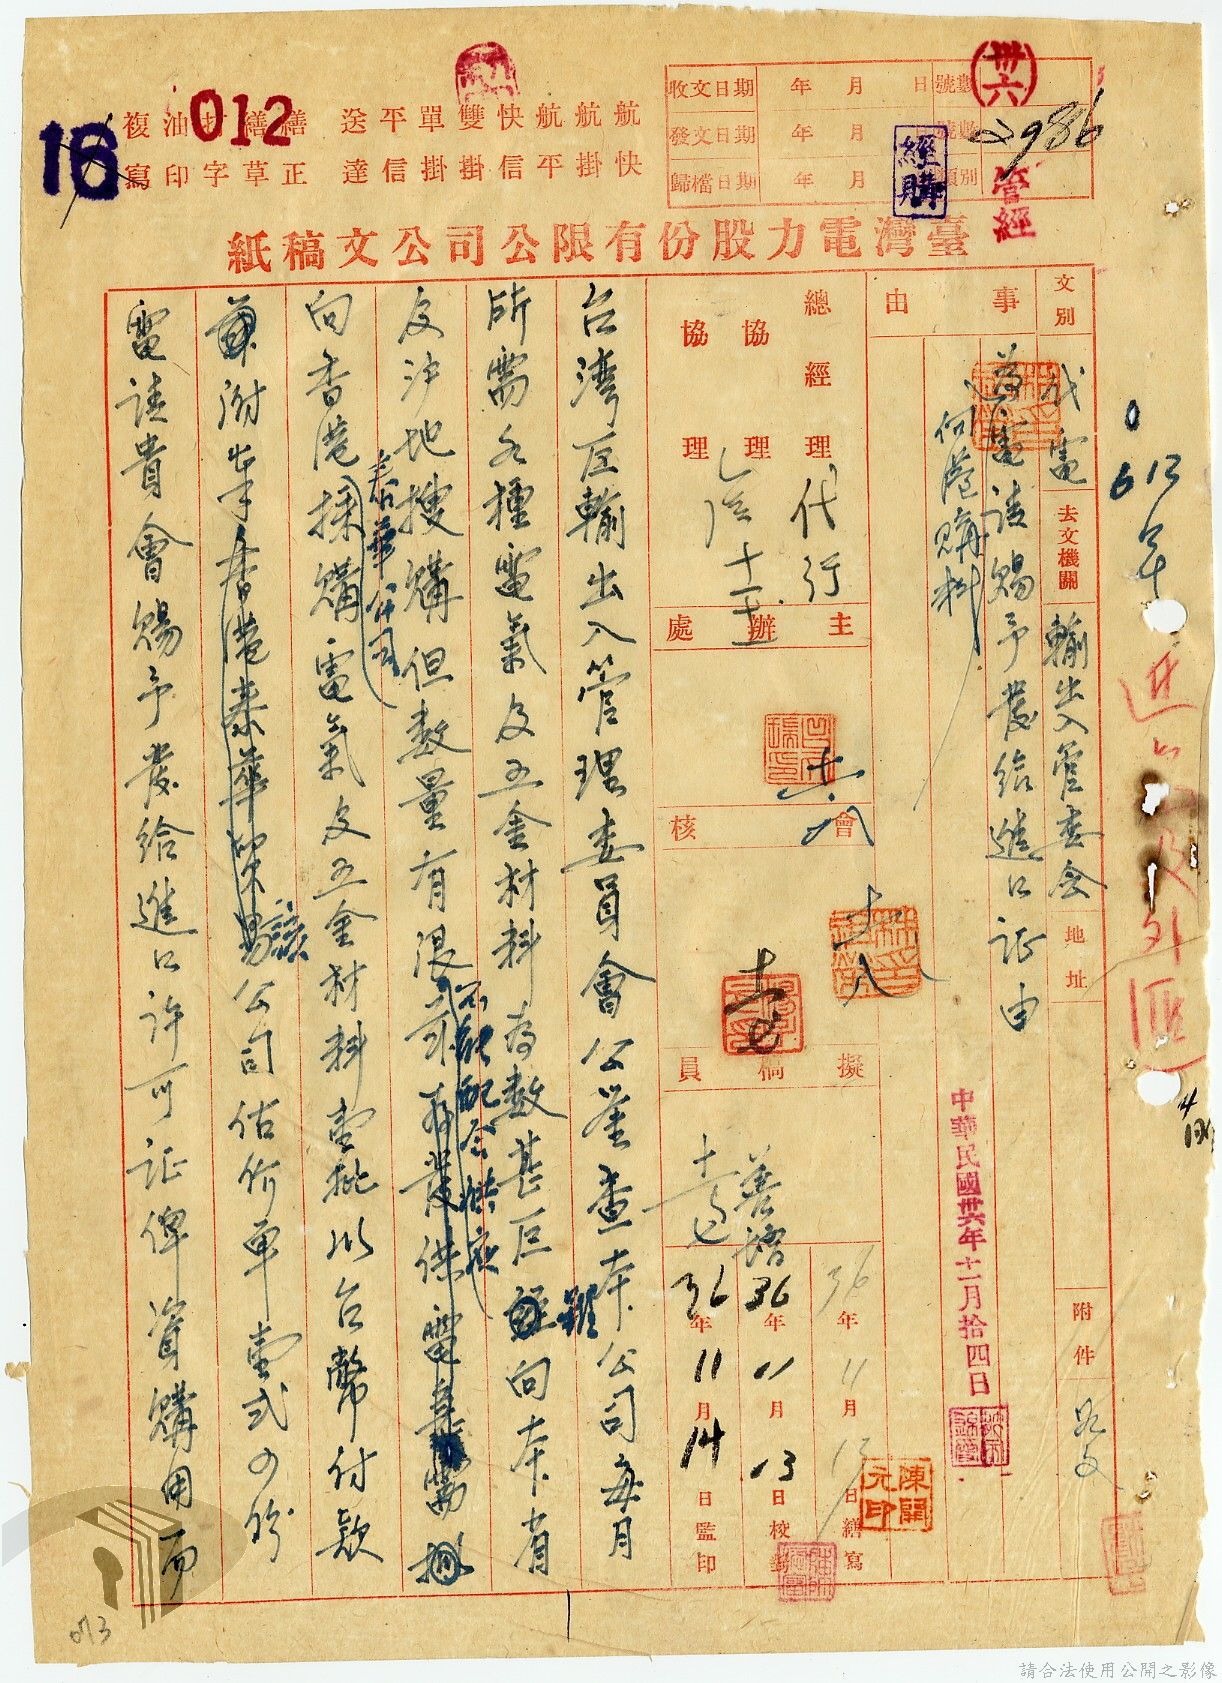 收文日期 年 月 日 號數
發文日期 年 月 號數
歸檔日期 年 月 類別
航航航快雙單平送
快掛平信掛掛信達
繕繕打油複
正草字印寫
16
012
(卅六)
986
管經
經購
臺灣電力股份有限公司公文稿紙
文別 代電
去文機關 輸出入管委会
地址
附件 如文
事由
為電請賜予發給進口证由
向港購料
總經理 代行
協理
協理
主辦處
會核
擬稿員
36年11月13日繕寫
36年11月13日校對
36年11月14日監印
中華民國卅六年十一月拾四日
陳開元印
進口及外匯
台湾区輸出入管理委員會公鉴查本公司每月
所需各種電氣及五金材料為数甚巨雖向本省
及沪地搜購但数量有限不能配合供应
向香港泰華公司採購電氣及五金材料壹批以台幣付款
兼附奉該公司估价單壹式四份
電請貴會賜予發給進口許可证俾資購用而
073
請合法使用公開之影像